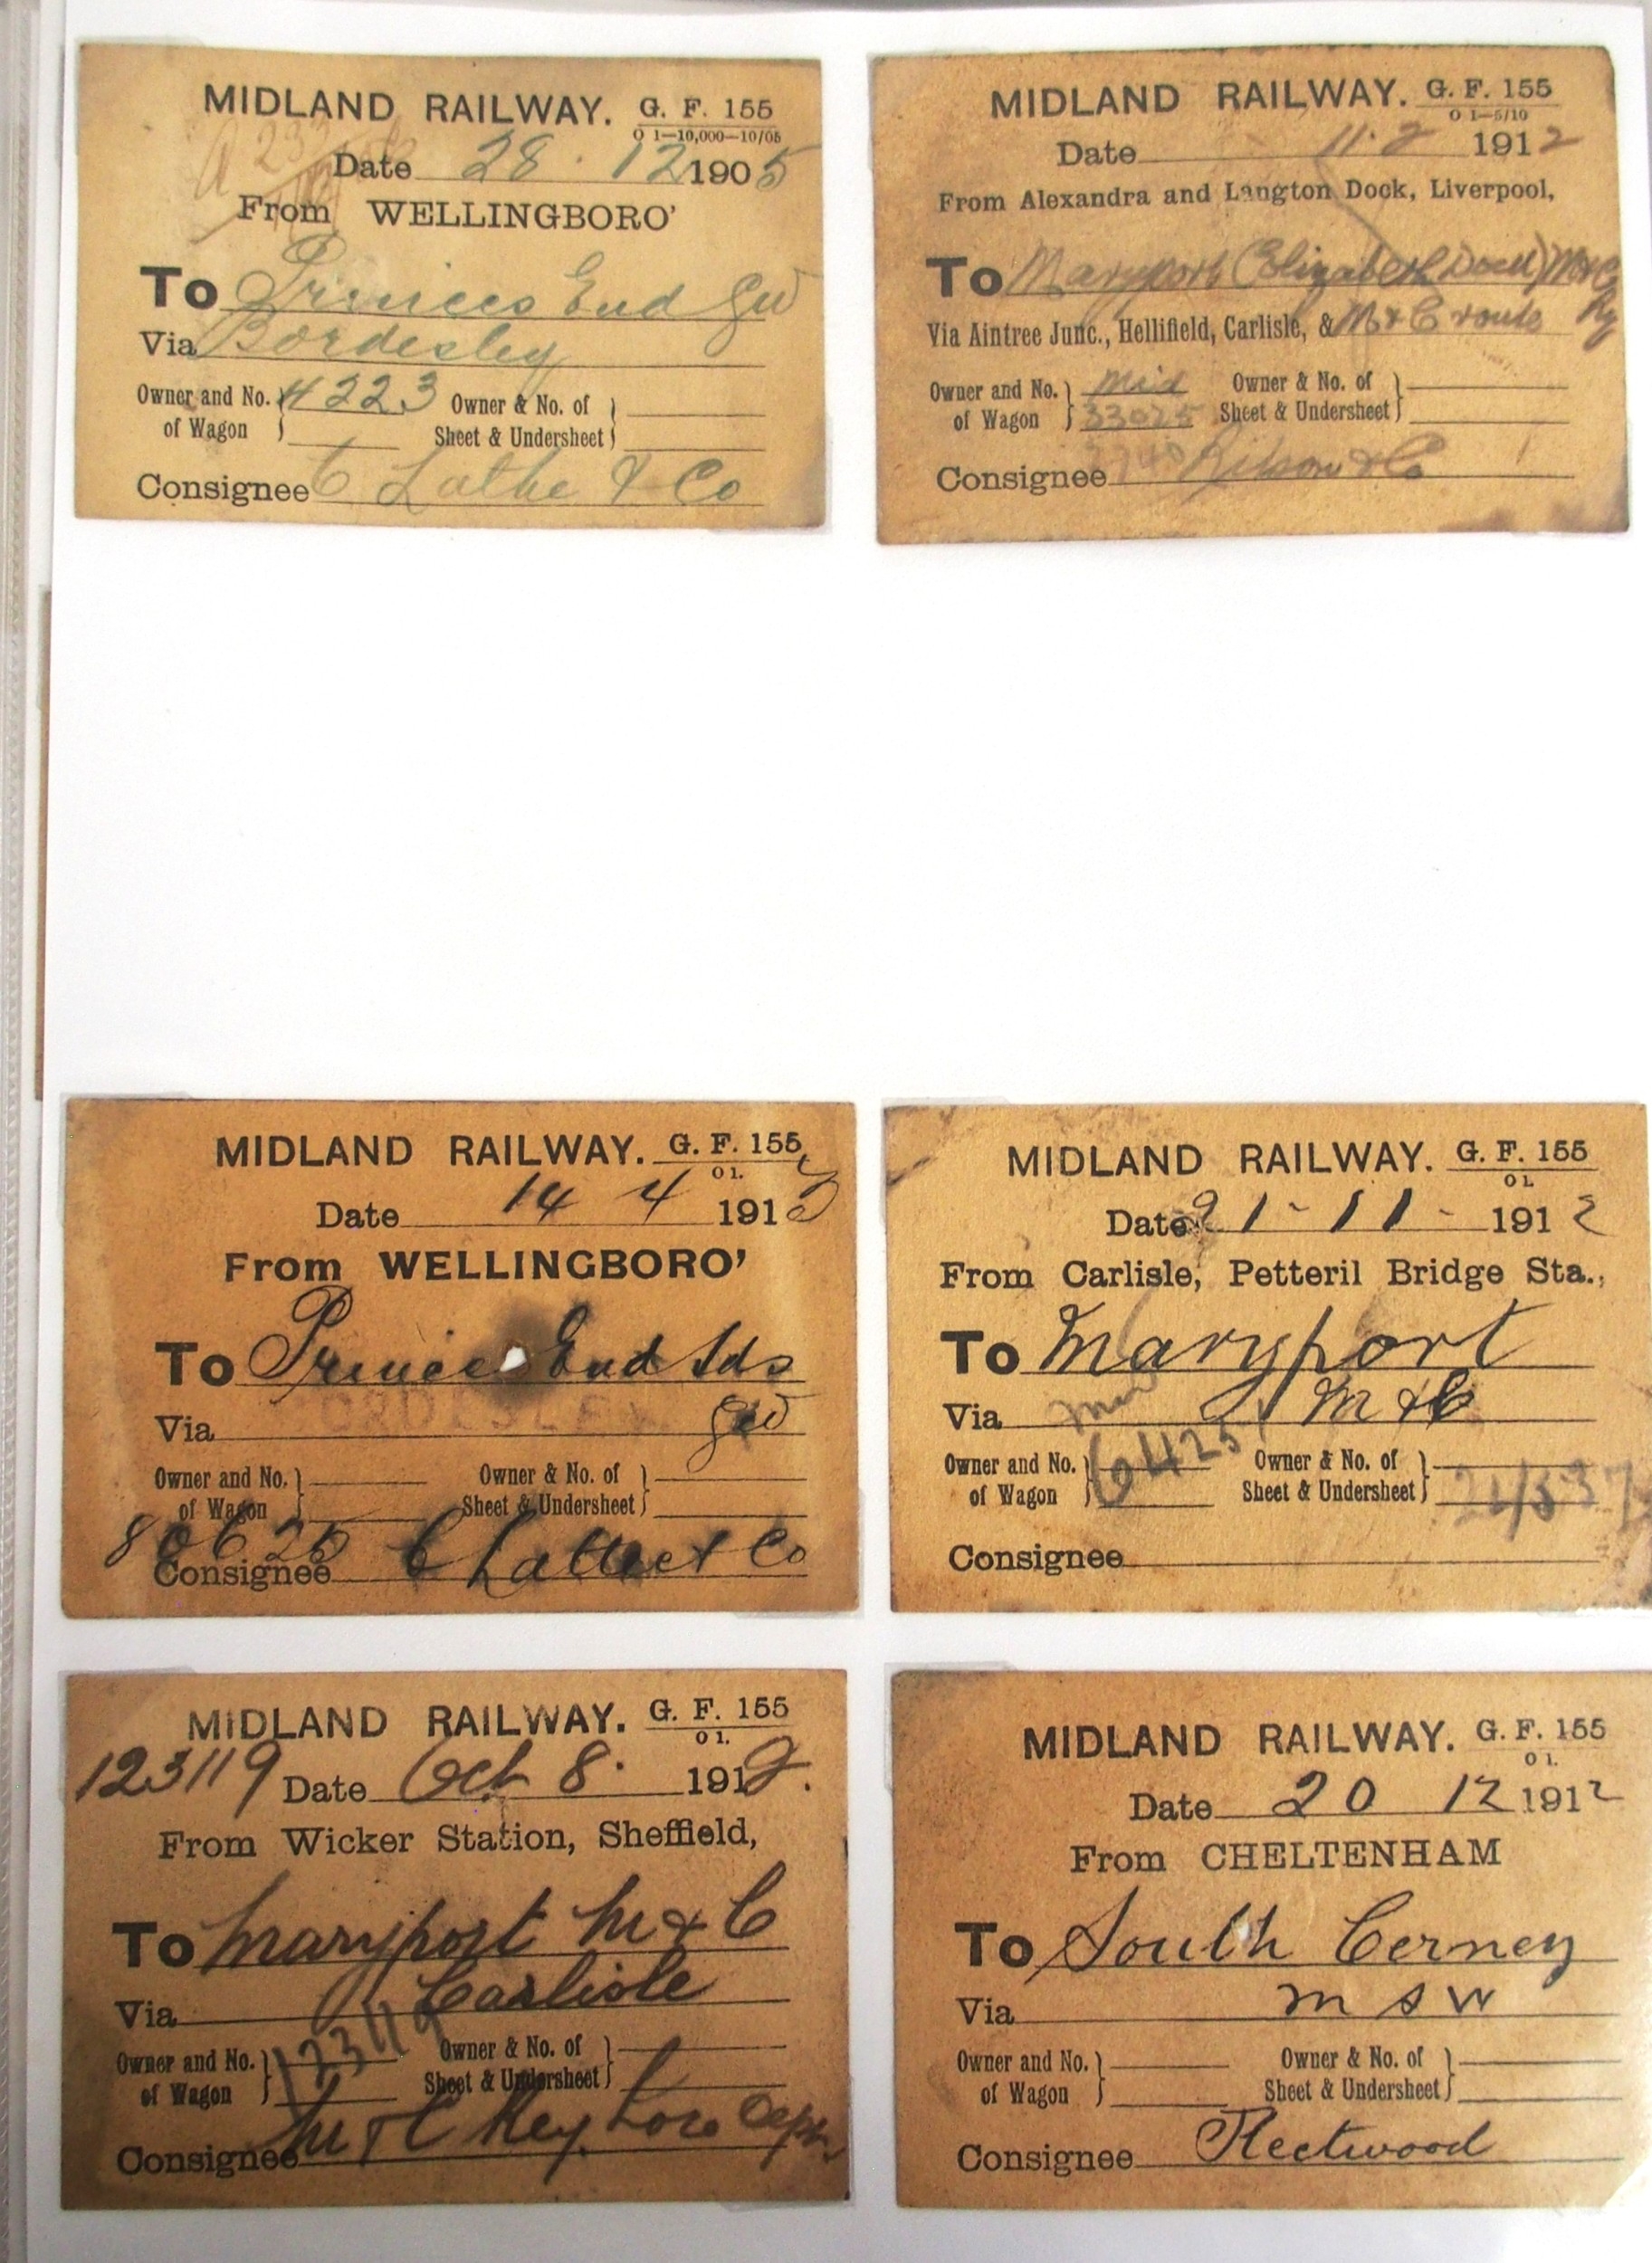 MIDLAND RAILWAY. G. F. 155
O 1—10,000—10/05
Date 28 . 12 1905
From WELLINGBORO'
To Princes End GW
Via Bordesley
Owner and No. of Wagon 4223 Owner & No. of Sheet & Undersheet
Consignee C Lathe & Co
MIDLAND RAILWAY. G. F. 155
O 1—5/10
Date 11·2 1912
From Alexandra and Langton Dock, Liverpool,
To Maryport (Elizabeth Dock) M&C Ry
Via Aintree Junc., Hellifield, Carlisle, & M&C route
Owner and No. of Wagon Mid 33025 Owner & No. of Sheet & Undersheet
Consignee & Co
MIDLAND RAILWAY. G. F. 155
O 1.
Date 14 4 1913
From WELLINGBORO'
To Princes End Sds
Via GW
Owner and No. of Wagon Owner & No. of Sheet & Undersheet
80626
Consignee C Lathe & Co
MIDLAND RAILWAY. G. F. 155
O 1.
Date 21-11- 1912
From Carlisle, Petteril Bridge Sta.,
To Maryport
Via M & C
Owner and No. of Wagon 6425 Owner & No. of Sheet & Undersheet
Consignee
MIDLAND RAILWAY. G. F. 155
O 1.
123119 Date Oct 8. 1912.
From Wicker Station, Sheffield,
To Maryport M & C
Via Carlisle
Owner and No. of Wagon 123119 Owner & No. of Sheet & Undersheet
Consignee M & C Rly. Loco Dept.
MIDLAND RAILWAY. G. F. 155
O 1.
Date 20 12 1912
From CHELTENHAM
To South Cerney
Via m s w
Owner and No. of Wagon Owner & No. of Sheet & Undersheet
Consignee Fleetwood